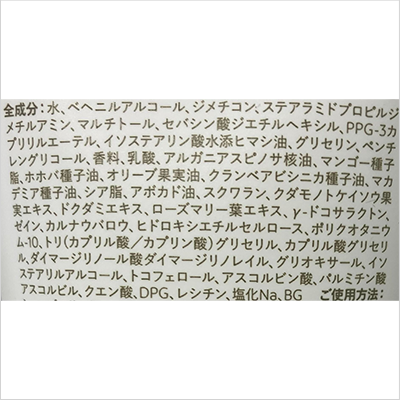 全成分：水、ベヘニルアルコール、ジメチコン、ステアラミドプロピルジ
メチルアミン、マルチトール、セバシン酸ジエチルヘキシル、PPG-3カ
プリリルエーテル、イソステアリン酸水添ヒマシ油、グリセリン、ペンチ
レングリコール、香料、乳酸、アルガニアスピノサ核油、マンゴー種子
脂、ホホバ種子油、オリーブ果実油、クランベアビシニカ種子油、マカ
デミア種子油、シア脂、アボカド油、スクワラン、クダモノトケイソウ果
実エキス、ドクダミエキス、ローズマリー葉エキス、γ-ドコサラクトン、
ゼイン、カルナウバロウ、ヒドロキシエチルセルロース、ポリクオタニウ
ム-10、トリ（カプリル酸／カプリン酸）グリセリル、カプリル酸グリセリ
ル、ダイマージリノール酸ダイマージリノレイル、グリオキサール、イソ
ステアリルアルコール、トコフェロール、アスコルビン酸、パルミチン酸
アスコルビル、クエン酸、DPG、レシチン、塩化Na、BG ご使用方法：